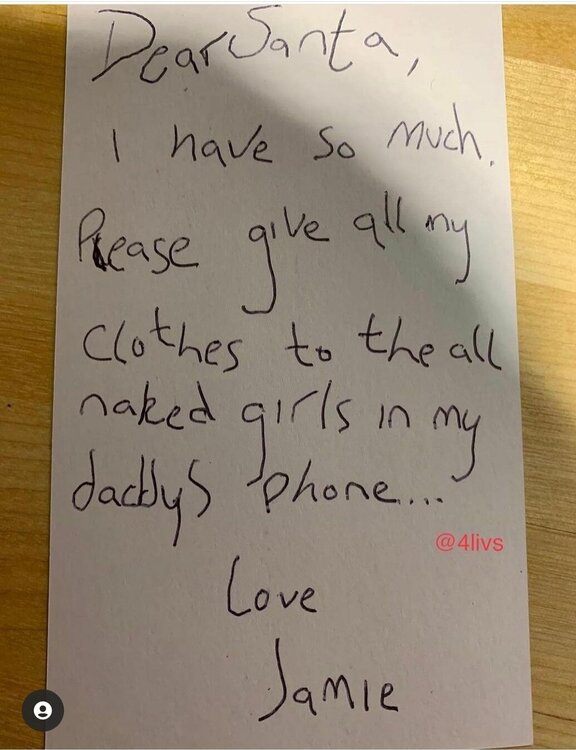 Dear Santa,
I have so much.
Please give all my
clothes to the all
naked girls in my
daddys phone...
@4livs
Love
Jamie